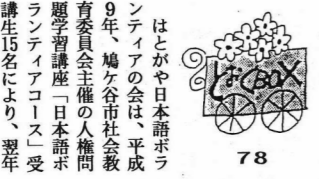 とっておくBOX
78
はとがや日本語ボラ
ンティアの会は、平成
9年、鳩ケ谷市社会教
育委員会主催の人権問
題学習講座「日本語ボ
ランティアコース」受
講生15名により、翌年